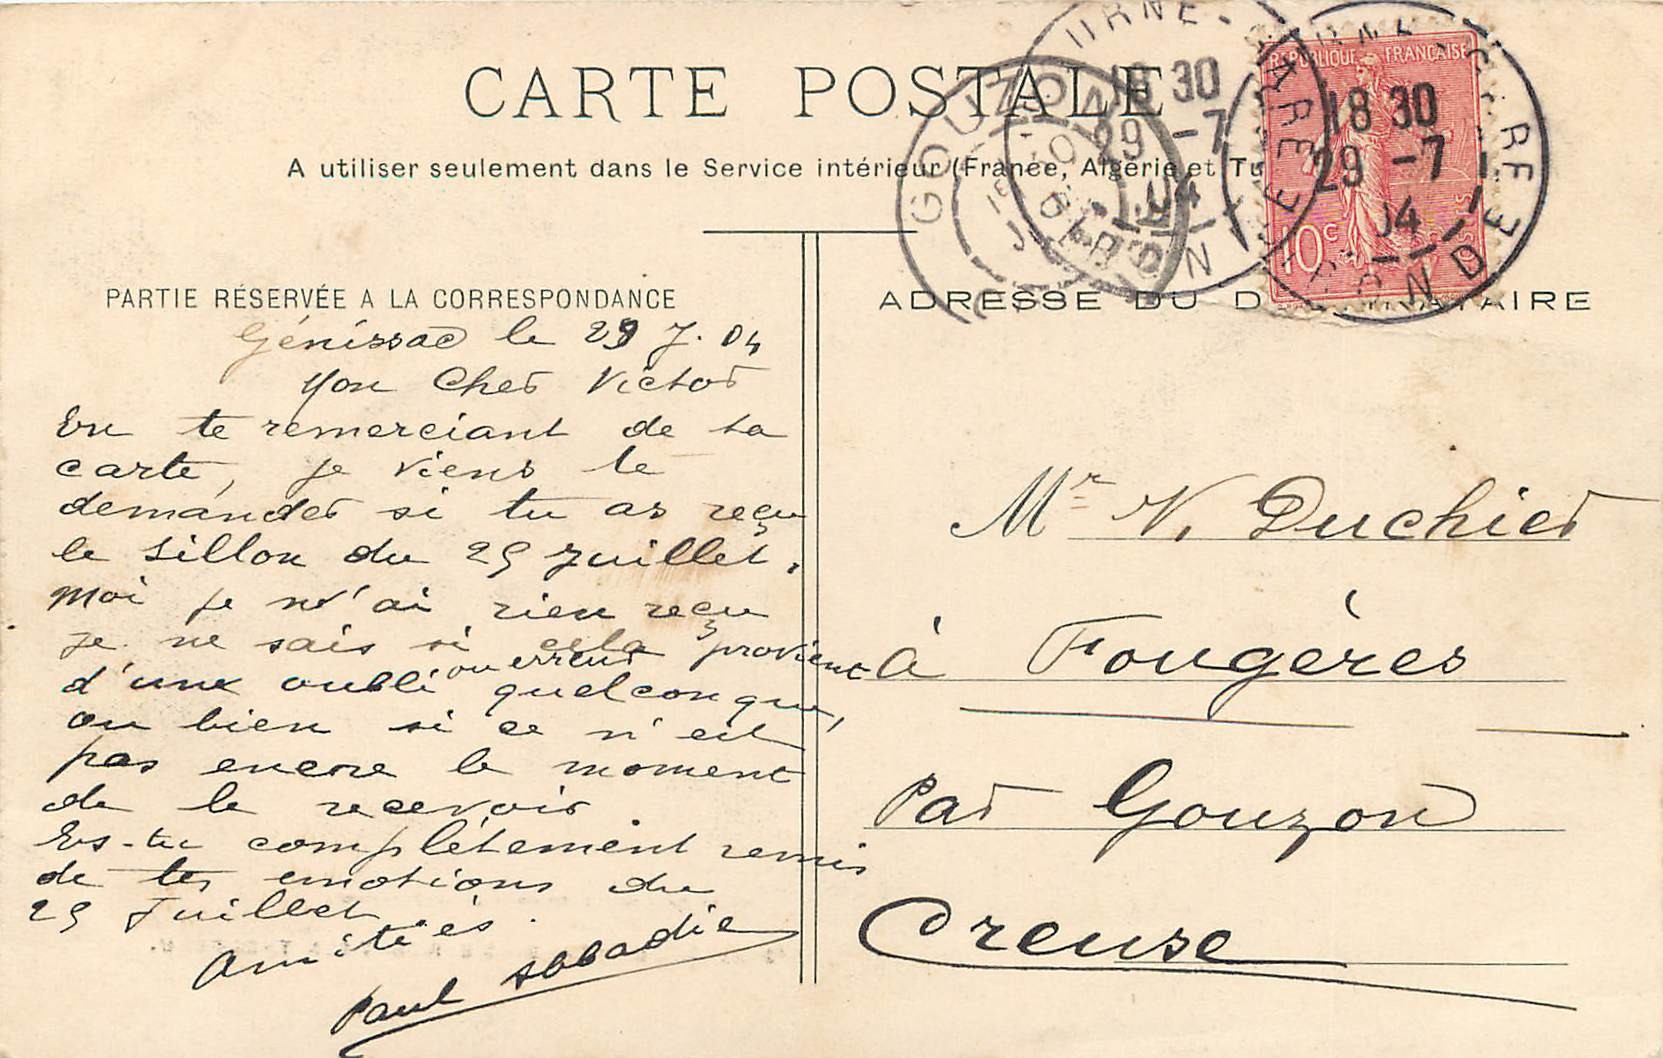 CARTE POSTALE
A utiliser seulement dans le Service intérieur (France, Algérie et Tu
PARTIE RÉSERVÉE A LA CORRESPONDANCE
Génissac le 29 7. 04
Mon Cher Victor
En te remerciant de ta
carte, je viens te
demander si tu as reçu
le Sillon du 25 Juillet.
Moi je n'ai rien reçu
je ne sais si cela provient
d'une oubli ou erreur quelconque,
ou bien si ce n'est
pas encore le moment
de le recevoir
Es-tu complètement remis
de tes emotions du
25 Juillet
Amitiés.
Paul Abbadie
ADRESSE DU D AIRE
Mr V. Duchier
à Fougères
Par Gouzon
Creuse
RÉPUBLIQUE FRANÇAISE
10c
18 30
29 -7
04
18 30
29 -7
04
GOUZON